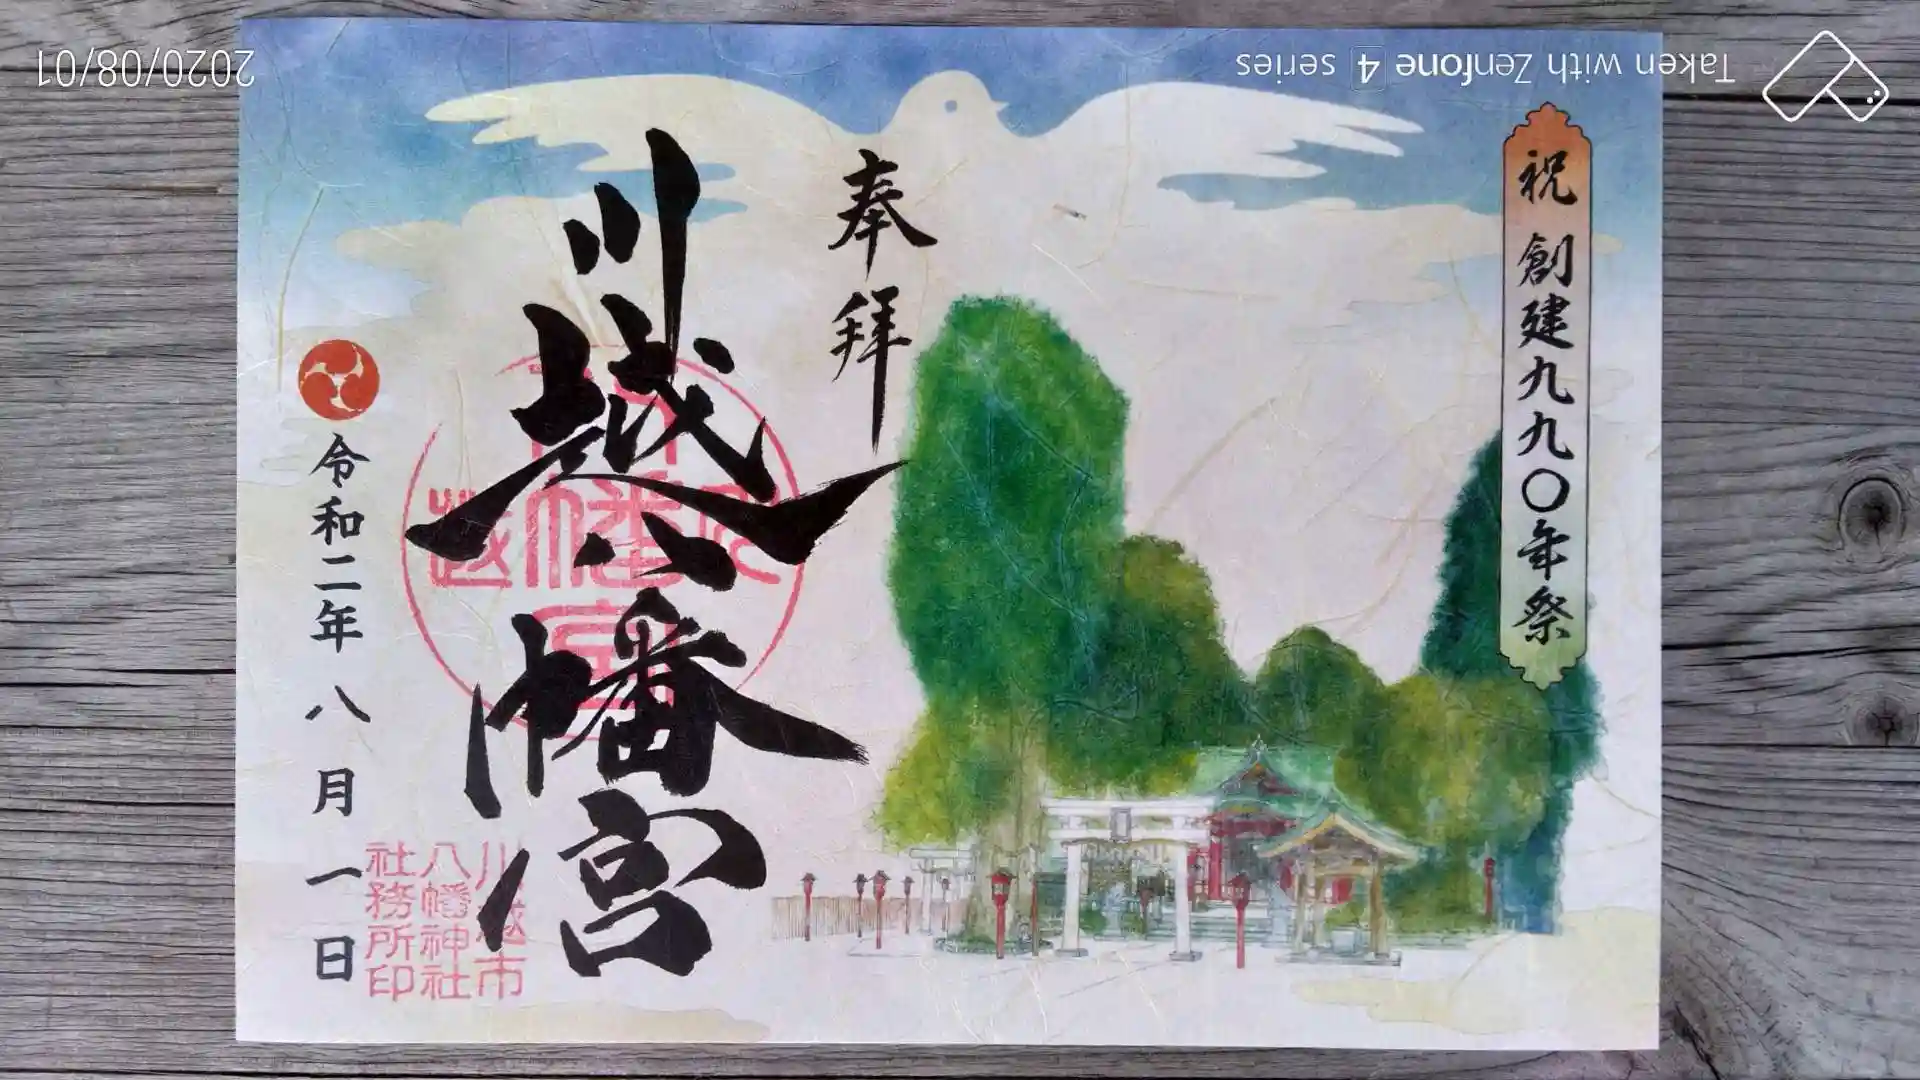 祝 創建九九〇年祭
奉拝
川越八幡宮
令和二年 八月 一日
川越市
八幡神社
社務所印
Taken with Zenfone 4 series
2020/08/01